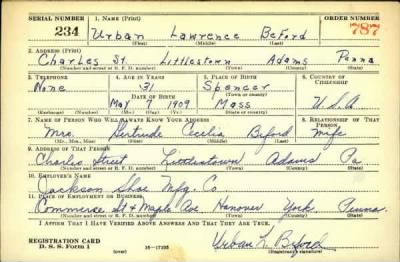 SERIAL NUMBER 1. NAME (Print) ORDER NUMBER
234 Urban Lawrence Beford 787
(First) (Middle) (Last)
2. ADDRESS (Print)
Charles St. Littlestown Adams Penna
(Number and street or R. F. D. number) (Town) (County) (State)
3. TELEPHONE 4. AGE IN YEARS 5. PLACE OF BIRTH 6. COUNTRY OF CITIZENSHIP
None 31 Spencer
DATE OF BIRTH (Town or county)
May 7 1909 Mass U.S.A
(Exchange) (Number) (Mo.) (Day) (Yr.) (State or country)
7. NAME OF PERSON WHO WILL ALWAYS KNOW YOUR ADDRESS 8. RELATIONSHIP OF THAT PERSON
Mrs. Gertrude Cecilia Beford Wife
(Mr., Mrs., Miss) (First) (Middle) (Last)
9. ADDRESS OF THAT PERSON
Charles Street Littlestown Adams Pa
(Number and street or R. F. D. number) (Town) (County) (State)
10. EMPLOYER'S NAME
Jackson Shoe Mfg. Co
11. PLACE OF EMPLOYMENT OR BUSINESS
Commerce St & Maple Ave Hanover York Penna.
(Number and street or R. F. D. number) (Town) (County) (State)
I AFFIRM THAT I HAVE VERIFIED ABOVE ANSWERS AND THAT THEY ARE TRUE.
REGISTRATION CARD Urban L. Beford
D. S. S. Form 1 (over) 16-17105 (Registrant's signature)